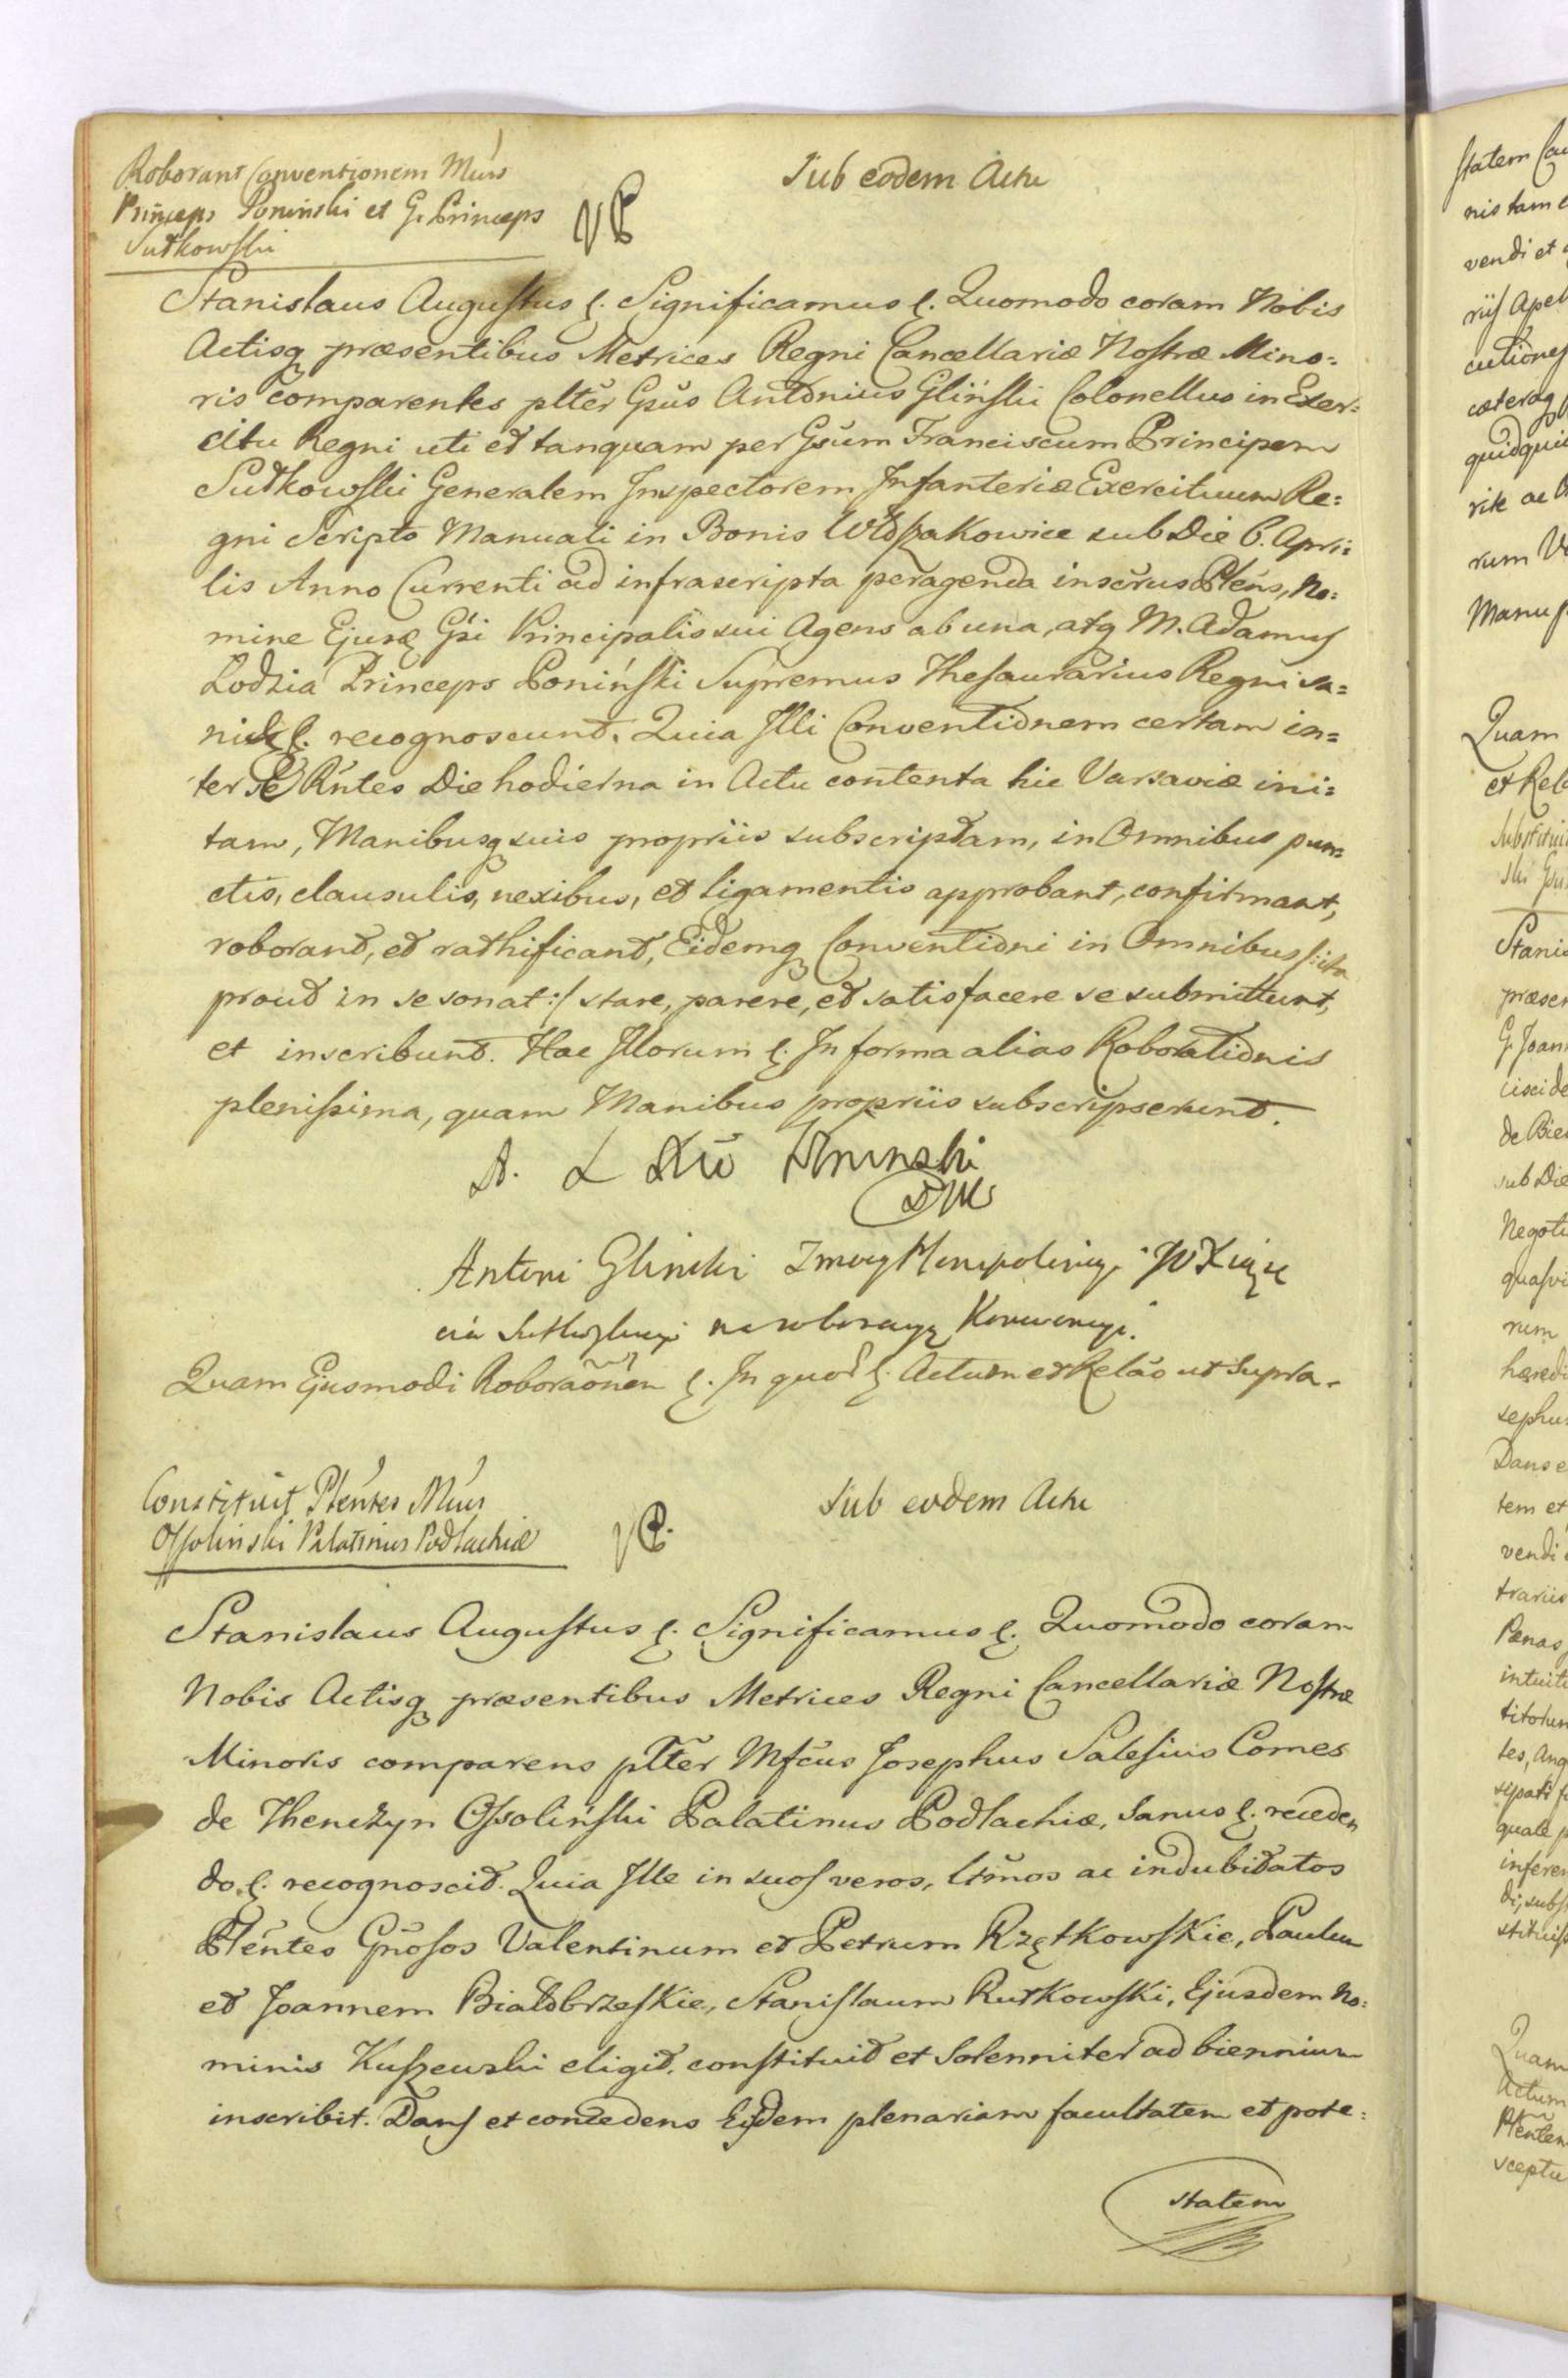 Roborant Conventionem Mcus
Princeps Poniński et G. Princeps
Sułkowski
Sub eodem Actu
Stanislaus Augustus &. Significamus &. Quomodo coram Nobis
Actisq præsentibus Metrices Regni Cancellariæ Nostræ Mino=
ris comparentes pltēr Gsūs Antonius Gliński Colonellus in Exer=
citu Regni uti et tanquam per Gsūm Franciscum Principem
Sułkowski Generalem Inspectorem Infanteriæ Exercituum Re=
gni Scripto Manuali in Bonis Włoszakowice sub Die 6. Apri=
lis Anno Currenti ad infrascripta peragenda inscrus Plens, No=
mine Ejusq Gsi Principalis sui Agens ab una, atq M. Adamus
Lodzia Princeps Poniński Supremus Thesaurarius Regni sa=
ni &. recognoscunt. Quia Illi Conventionem certam in=
ter Se Rntes Die hodierna in Actu contenta hic Varsaviæ ini=
tam, Manibusq suis propriis subscriptam, in Omnibus pun=
ctis, clausulis, nexibus, et ligamentis approbant, confirmant,
roborant, et rathificant, Eidemq Conventioni in Omnibus /:ita
prout in se sonat:/ stare, parere, et satisfacere se submittunt,
et inscribunt. Hac Illorum &. In forma alias Roborationis
plenissima, quam Manibus propriis subscripserunt.
A. L Xże Poninski
Antoni Glinski Zmocy Plenipotencyi JO Xiąże
cia Sułkowskiego na roboracyą Konwencyi.
Quam Ejusmodi Roboraõnem &. In quor &. Actum et Relão ut Supra.
Constituit Plentes Mcus
Ossolinski Palatinus Podlachiæ
Sub eodem Actu
Stanislaus Augustus &. Significamus &. Quomodo coram
Nobis Actisq præsentibus Metrices Regni Cancellariæ Nostræ
Minoris comparens pltēr Mfcus Josephus Salesius Comes
de Thenczyn Ossoliński Palatinus Podlachiæ, Sanus &. receden
do &. recognoscit. Quia Ille in suos veros, ltmos ac indubitatos
Plentes Gnosos Valentinum et Petrum Rzętkowskie, Paulum
et Joannem Białobrzeskie, Stanislaum Rutkowski, Ejusdem No=
minis Kuszewski eligit, constituit et Solenniter ad biennium
inscribit. Dans et concedens Eisdem plenariam facultatem et pote=
statem